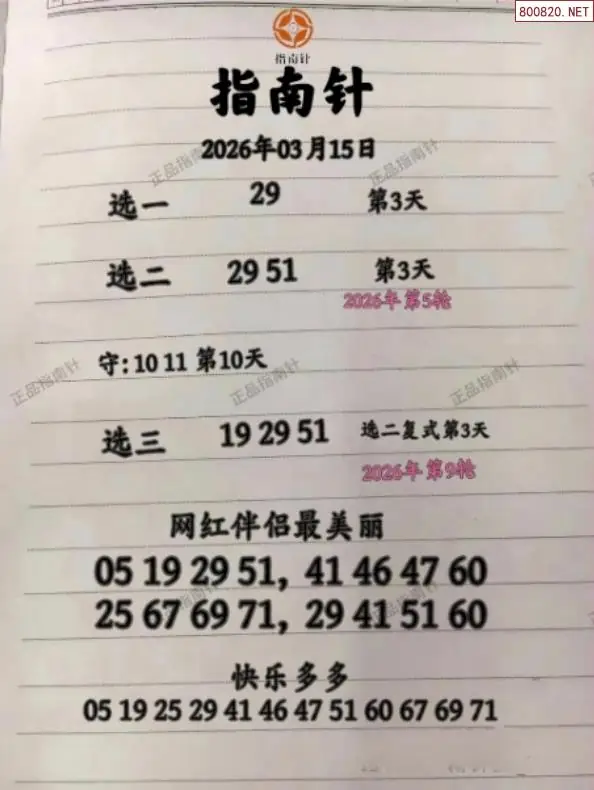 800820.NET
指南针
指南针
2026年03月15日
选一 29 第3天
选二 29 51 第3天
2026年 第5轮
守: 10 11 第10天
选三 19 29 51 选二复式第3天
2026年 第9轮
网红伴侣最美丽
05 19 29 51, 41 46 47 60
25 67 69 71, 29 41 51 60
快乐多多
05 19 25 29 41 46 47 51 60 67 69 71
正品指南针
正品指南针
正品指南针
正品指南针
正品指南针
正品指南针
正品指南针